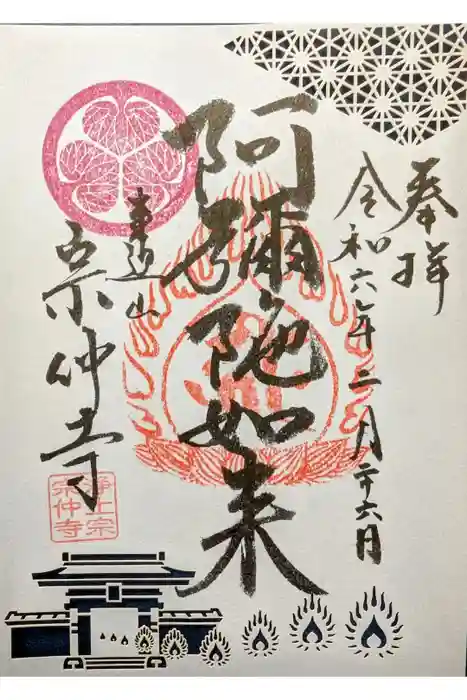 奉拝
令和六年二月二十六日
阿彌陀如来
来迎山
宗仲寺
浄土宗
宗仲寺